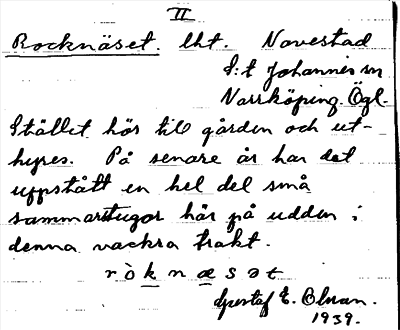 II
Rocknäset. lht. Navestad
S:t Johannes sn
Norrköping. Ögl.
Stället hör till gården och ut-
hyres. På senare år har det
uppstått en hel del små
sommarstugor här på udden i
denna vackra trakt.
ròknæsət
Gustaf E. Olman.
1939.